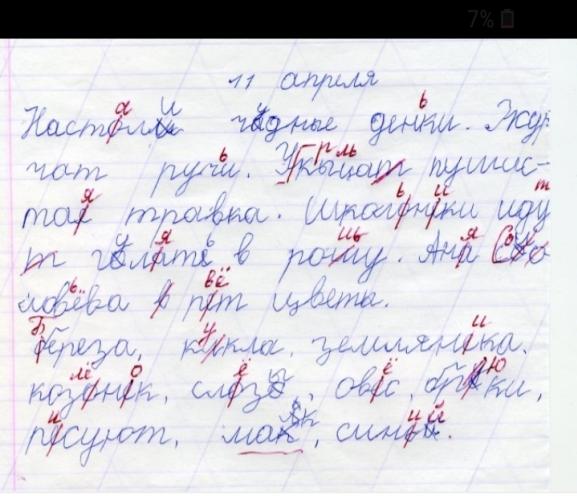 7%
11 апреля
Настали чудные денки. Жур
чат ручи. пушис-
тая травка. Школники иду
т гулять в рощу. Аня
ловёва цветы.
береза, кукла, земляника,
козлёнок, слёзы, овёс, брюки,
рисуют, маяк, синий.